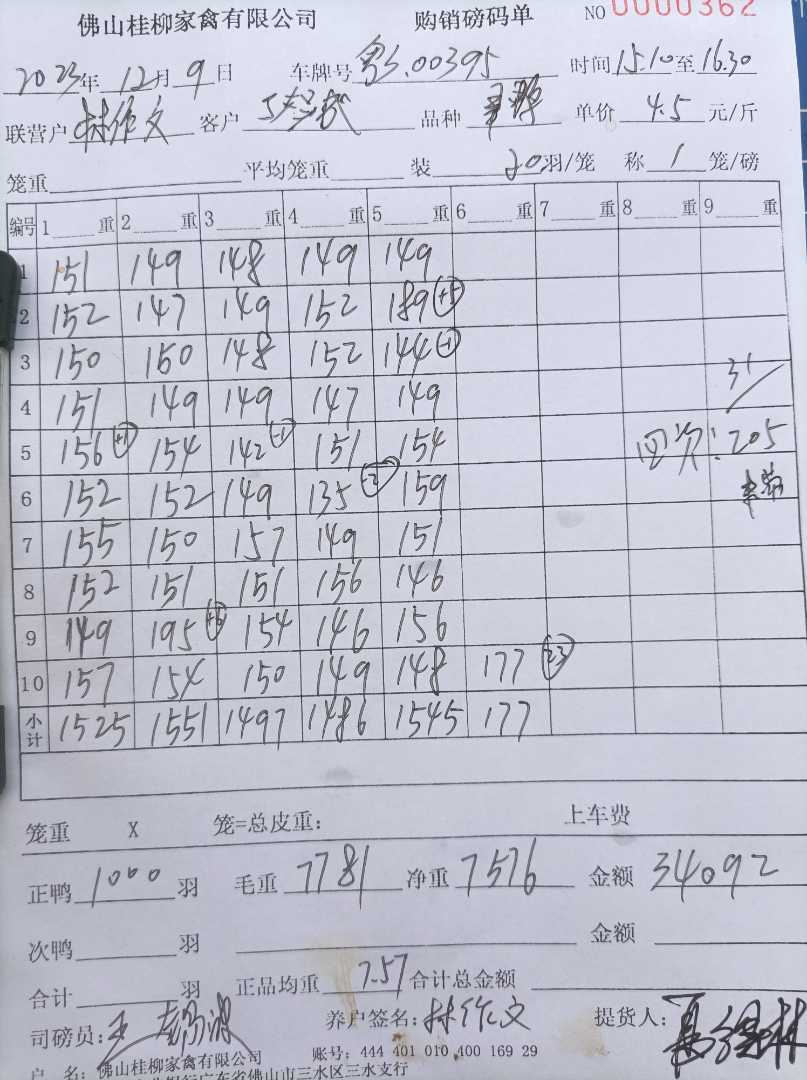 佛山桂柳家禽有限公司 购销磅码单 NO 0000362
2023年 12月 9日 车牌号 粤S.00395 时间 15.10至 16.30
联营户 林作文 客户 品种 单价 4.5 元/斤
笼重 平均笼重 装 20羽/笼 称 1 笼/磅
编号 1 重 2 重 3 重 4 重 5 重 6 重 7 重 8 重 9 重
1 151 149 148 149 149
2 152 147 149 152 189 +5
3 150 150 148 152 144 -1
4 151 149 149 147 149 31
5 156 +1 154 142 -1 151 154 四次:205
6 152 152 149 135 -2 159
7 155 150 157 149 151
8 152 151 151 156 146
9 149 195 +6 154 146 156
10 157 154 150 149 148 177 23
小计 1525 1551 1497 1486 1545 177
笼重 X 笼=总皮重: 上车费
正鸭 1000 羽 毛重 7781 净重 7576 金额 34092
次鸭 羽 金额
合计 羽 正品均重 7.57 合计总金额
司磅员: 王 养户签名: 林作文 提货人:
户 名: 佛山桂柳家禽有限公司 账号: 444 401 010 400 169 29
广东省佛山市三水区三水支行